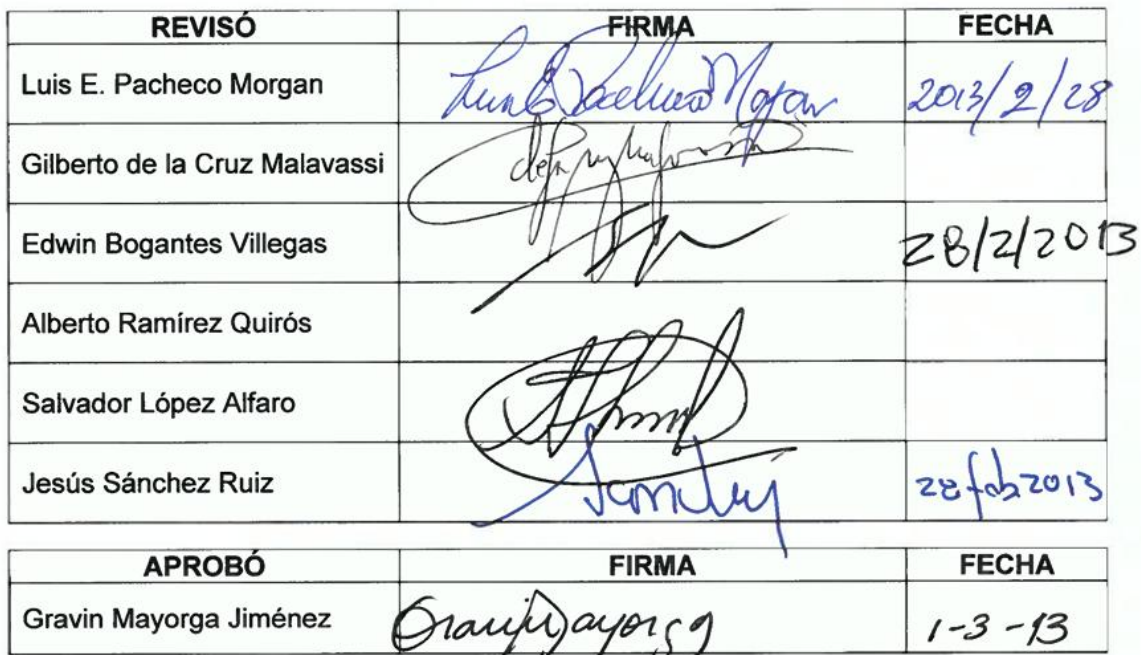 REVISÓ FIRMA FECHA
Luis E. Pacheco Morgan Luis E Pacheco Morgan 2013/2/28
Gilberto de la Cruz Malavassi
Edwin Bogantes Villegas 28/2/2013
Alberto Ramírez Quirós
Salvador López Alfaro
Jesús Sánchez Ruiz 28 feb 2013
APROBÓ FIRMA FECHA
Gravin Mayorga Jiménez Gravin Mayorga 1-3-13